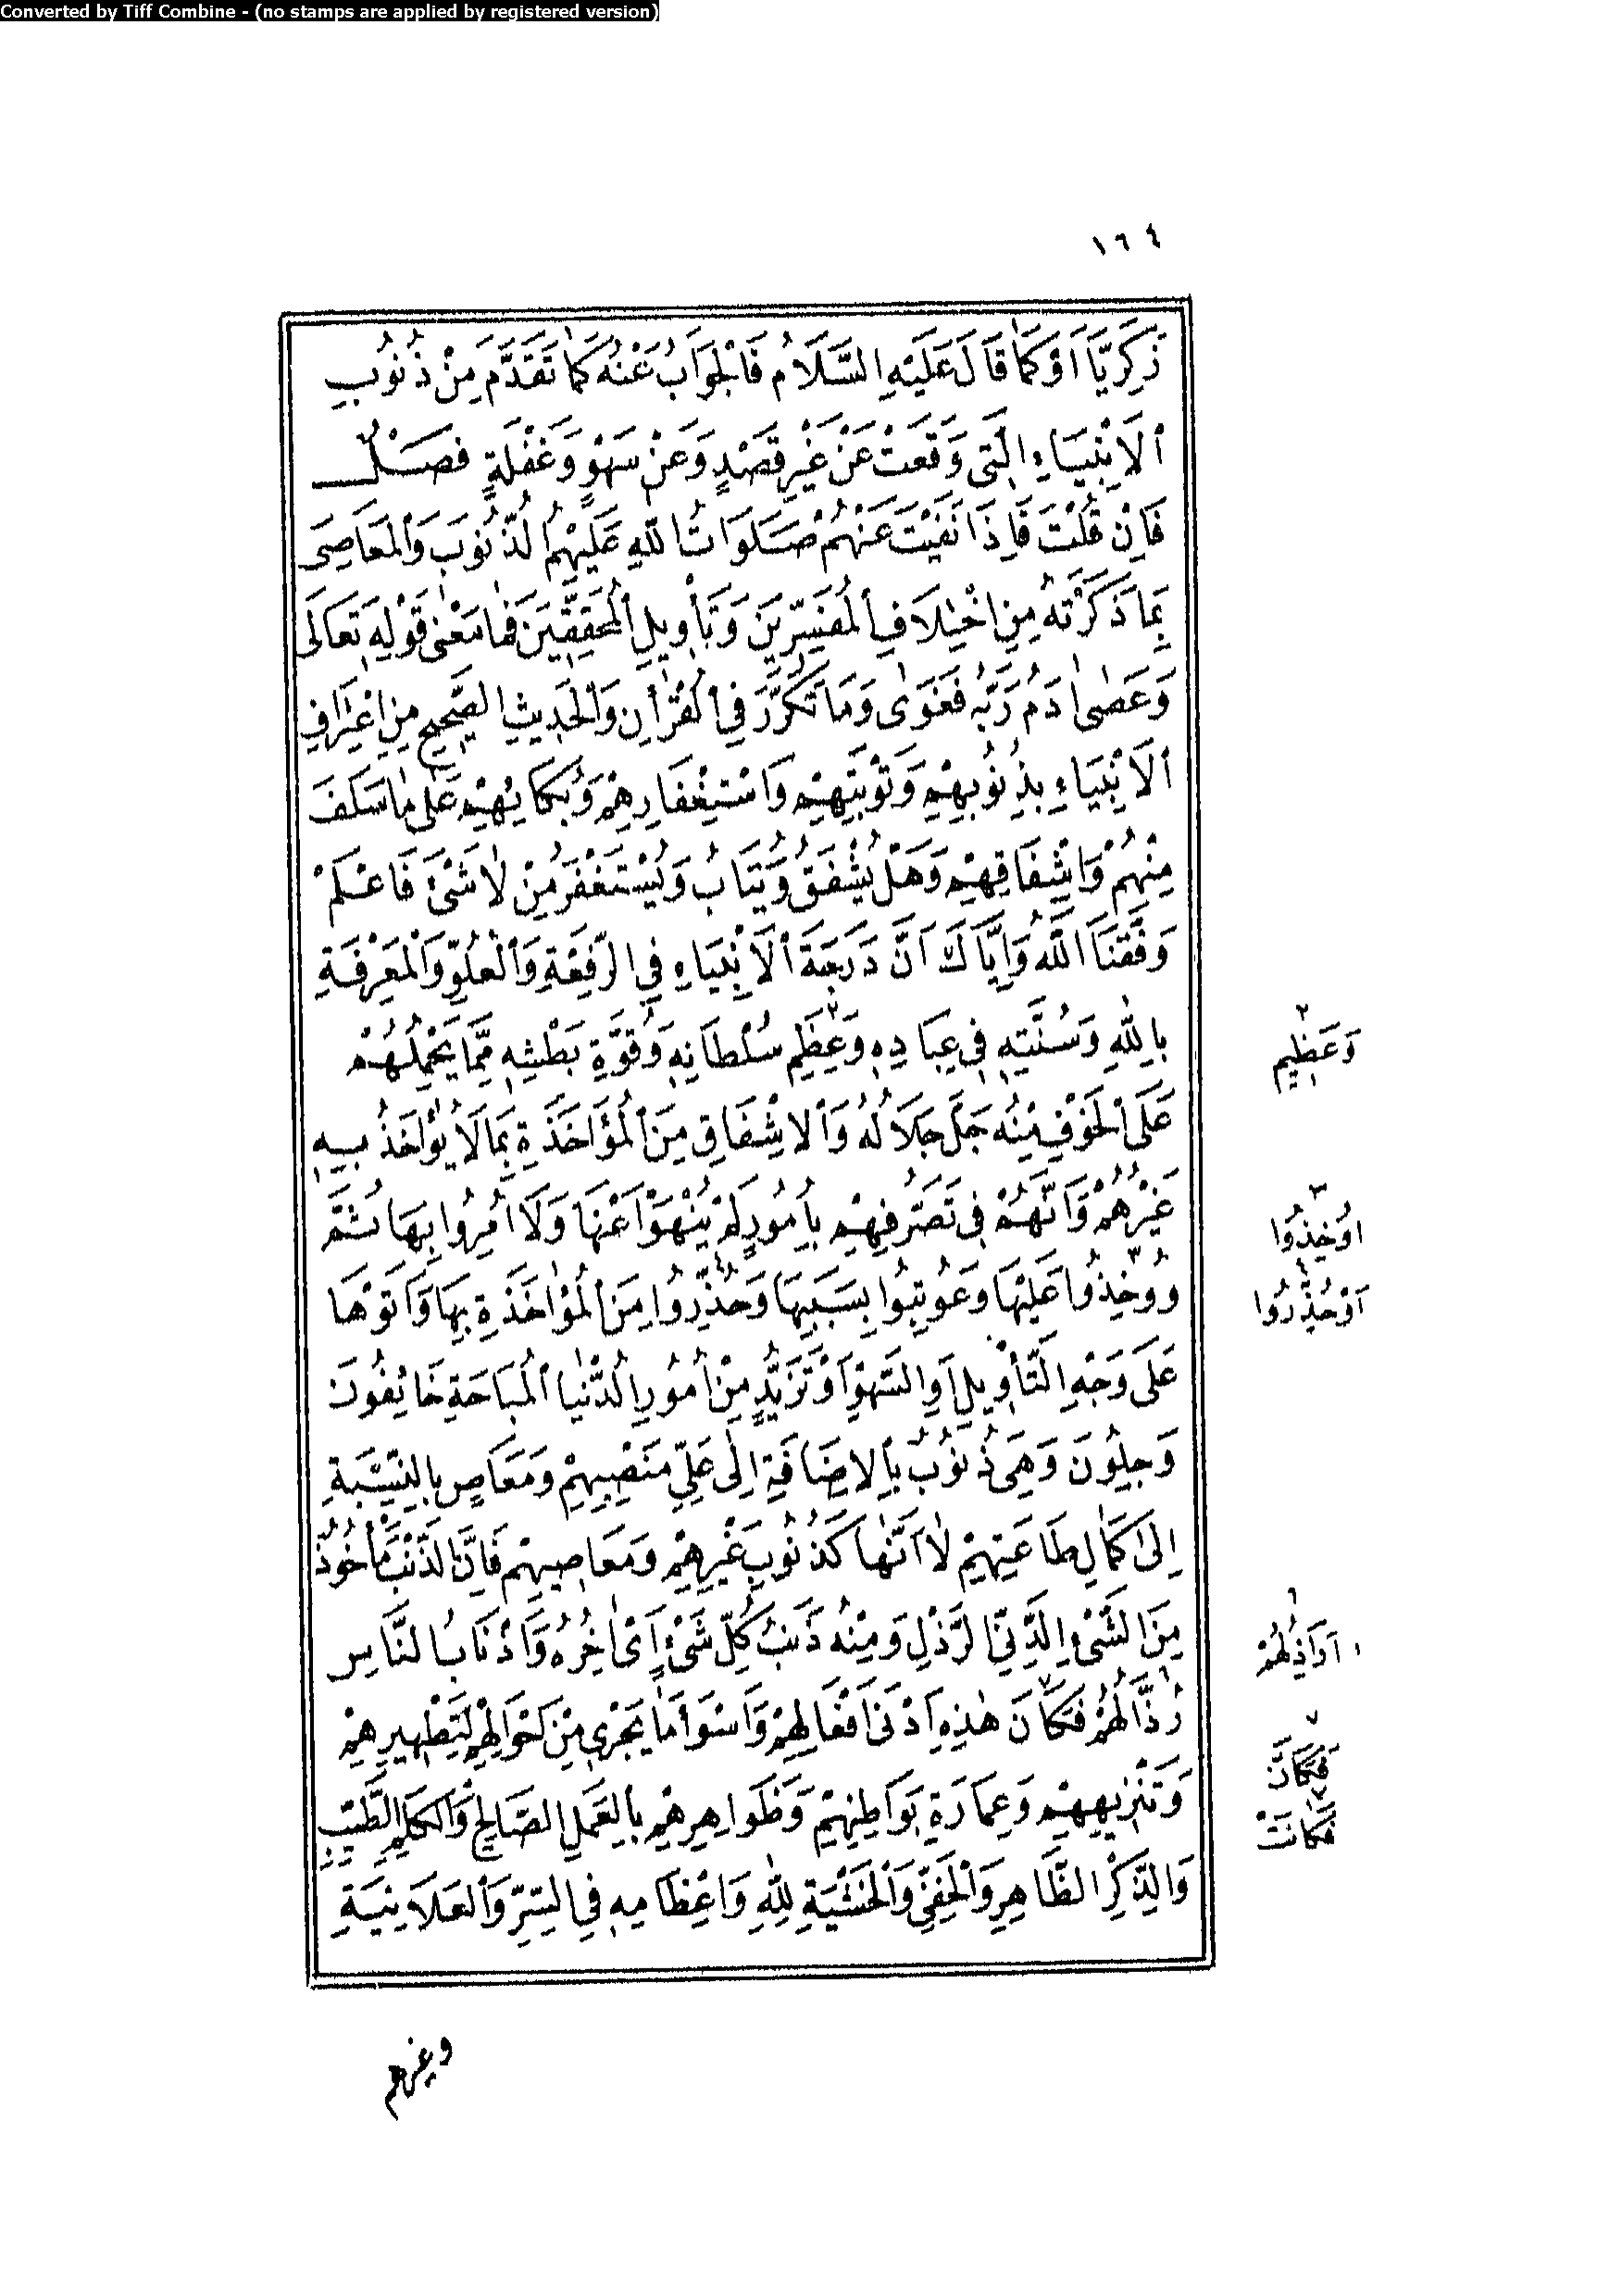 Converted by Tiff Combine - (no stamps are applied by registered version)
١٦٤
زَكَرِيَّا اَوْ كَمَا قَالَ عَلَيْهِ السَّلَامُ فَالْجَوَابُ عَنْهُ كَمَا تَقَدَّمَ مِنْ ذُنُوبِ
الْاَنْبِيَاءِ الَّتِى وَقَعَتْ عَنْ غَيْرِ قَصْدٍ وَعَنْ سَهْوٍ وَغَفْلَةٍ فَصْلٌ
فَاِنْ قُلْتَ فَاِذَا نَفَيْتَ عَنْهُمْ صَلَوَاتُ اللّٰهِ عَلَيْهِمُ الذُّنُوبَ وَالْمَعَاصِىَ
بِمَا ذَكَرْتَهُ مِنِ اخْتِلَافِ الْمُفَسِّرِينَ وَتَأْوِيلِ الْمُحَقِّقِينَ فَمَا مَعْنٰى قَوْلِهِ تَعَالَى
وَعَصٰى اٰدَمُ رَبَّهُ فَغَوٰى وَمَا تَكَرَّرَ فِى الْقُرْاٰنِ وَالْحَدِيثِ الصَّحِيحِ مِنِ اعْتِرَافِ
الْاَنْبِيَاءِ بِذُنُوبِهِمْ وَتَوْبَتِهِمْ وَاسْتِغْفَارِهِمْ وَبُكَائِهِمْ عَلٰى مَا سَلَفَ
مِنْهُمْ وَاِشْفَاقِهِمْ وَهَلْ يُشْفَقُ وَيُتَابُ وَيُسْتَغْفَرُ مِنْ لَا شَىْءٍ فَاعْلَمْ
وَفَّقَنَا اللّٰهُ وَاِيَّاكَ اَنَّ دَرَجَةَ الْاَنْبِيَاءِ فِى الرِّفْعَةِ وَالْعُلُوِّ وَالْمَعْرِفَةِ
بِاللّٰهِ وَسُنَّتِهِ فِى عِبَادِهِ وَعِظَمِ سُلْطَانِهِ وَقُوَّةِ بَطْشِهِ مِمَّا يَحْمِلُهُمْ
٢
وَعَظِيمِ
عَلَى الْخَوْفِ مِنْهُ جَلَّ جَلَالُهُ وَالْاِشْفَاقِ مِنَ الْمُؤَاخَذَةِ بِمَا لَا يُؤَاخَذُ بِهِ
غَيْرُهُمْ وَاَنَّهُمْ فِى تَصَرُّفِهِمْ بِاُمُورٍ لَمْ يُنْهَوْا عَنْهَا وَلَا اُمِرُوا بِهَا ثُمَّ
٣
اُوخِذُوا
وُوخِذُوا عَلَيْهَا وَعُوتِبُوا بِسَبَبِهَا وَحُذِّرُوا مِنَ الْمُؤَاخَذَةِ بِهَا وَاَتَوْهَا
اَوْحُذِّرُوا
عَلَى وَجْهِ التَّأْوِيلِ اَوِ السَّهْوِ اَوْ تَزَيُّدٍ مِنْ اُمُورِ الدُّنْيَا الْمُبَاحَةِ خَائِفُونَ
وَجِلُونَ وَهِىَ ذُنُوبٌ بِالْاِضَافَةِ اِلٰى عَلِىِّ مَنْصِبِهِمْ وَمَعَاصٍ بِالنِّسْبَةِ
اِلٰى كَمَالِ طَاعَتِهِمْ لَا اَنَّهَا كَذُنُوبِ غَيْرِهِمْ وَمَعَاصِيهِمْ فَاِنَّ الذَّنْبَ مَأْخُوذٌ
مِنَ الشَّىْءِ الدَّنِىِّ الرَّذْلِ وَمِنْهُ ذَنَبُ كُلِّ شَىْءٍ اَىْ اٰخِرُهُ وَاَذْنَابُ النَّاسِ
٦
اَرَاذِلُهُمْ
رُذَّالُهُمْ فَكَانَ هٰذِهِ اَدْنَى اَفْعَالِهِمْ وَاَسْوَأَ مَا يَجْرِى مِنْ اَحْوَالِهِمْ لِتَطْهِيرِهِمْ
٧
فَكَاَنَّ
وَتَنْزِيهِهِمْ وَعِمَارَةِ بَوَاطِنِهِمْ وَظَوَاهِرِهِمْ بِالْعَمَلِ الصَّالِحِ وَالْكَلِمِ الطَّيِّبِ
٧
فَكَانَتْ
وَالذِّكْرِ الظَّاهِرِ وَالْخَفِىِّ وَالْخَشْيَةِ لِلّٰهِ وَاِعْظَامِهِ فِى السِّرِّ وَالْعَلَانِيَةِ
وغيرهم